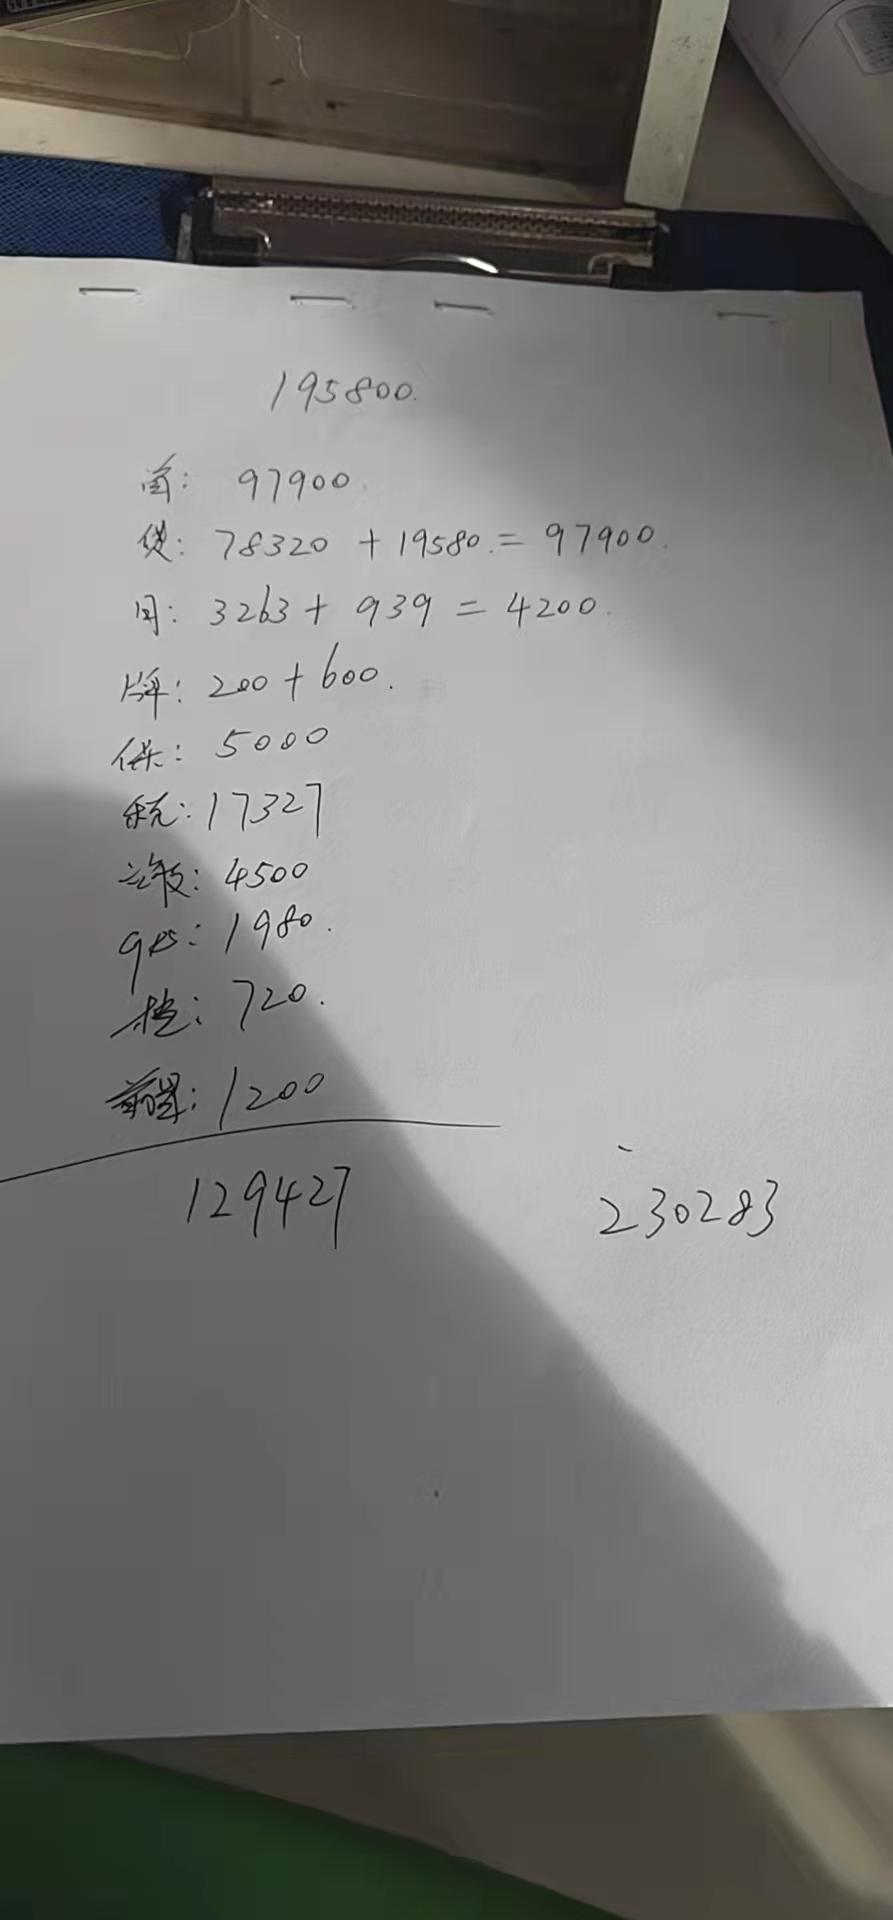 195800.
首: 97900.
贷: 78320 + 19580. = 97900.
月: 3263 + 939 = 4200.
牌: 200 + 600.
保: 5000
税: 17327
4500
gps: 1980.
720.
1200
129427
230283